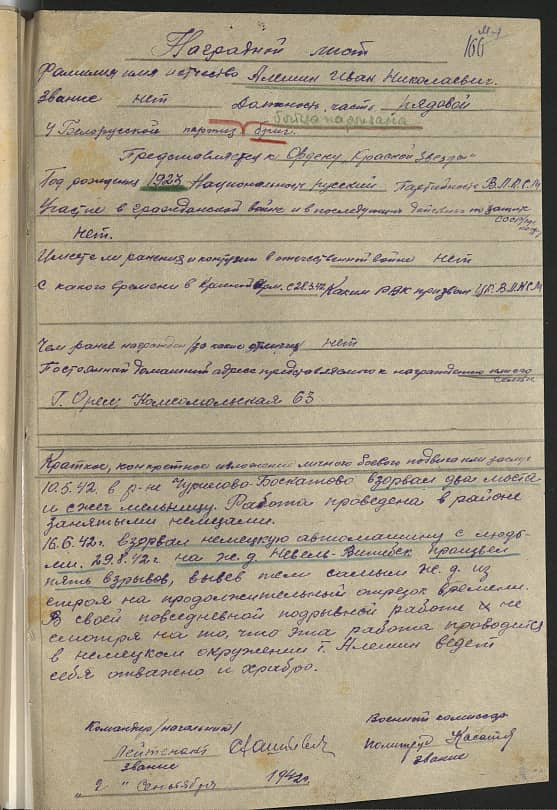 166
Наградной лист
Фамилия имя и отчество Алешин Иван Николаевич.
Звание нет Должность, часть рядовой
бойца партизана
4 Белорусской партиз бриг.
Представляется к Ордену "Красной Звезды"
Год рождения 1923 Национальность русский Партийность В.Л.К.С.М
Участие в гражданской войне и в последующих действиях по защите СССР
нет.
Имеет ли ранения и контузии в отечественной войне нет
С какого времени в Красной Арм. с 28.3.42 Каким РВК призван ЦК В.Л.К.С.М
Чем ранее награжден /за какие отличия/ нет
Постоянный домашний адрес представляемого к награждению и его семьи
Г. Орск Комсомольская 63
Краткое, конкретное изложение личного боевого подвига или заслуг
10.5.42. в р-не взорвал два моста
и сжег мельницу. Работа проведена в районе
занятыми немцами.
16.6.42г. взорвал немецкую автомашину с людь-
ми. 29.8.42г. на ж.д. Невель-Витебск произвел
пять взрывов, вывев тем самым ж.д. из
строя на продолжительный отрезок времени.
В своей повседневной подрывной работе не
смотря на то, что эта работа проводится
в немецком окружении т. Алешин ведет
себя отважно и храбро.
Командир /начальник/ Военный комиссар
Лейтенант политрук
звание звание
"2" Сентября 1942г.